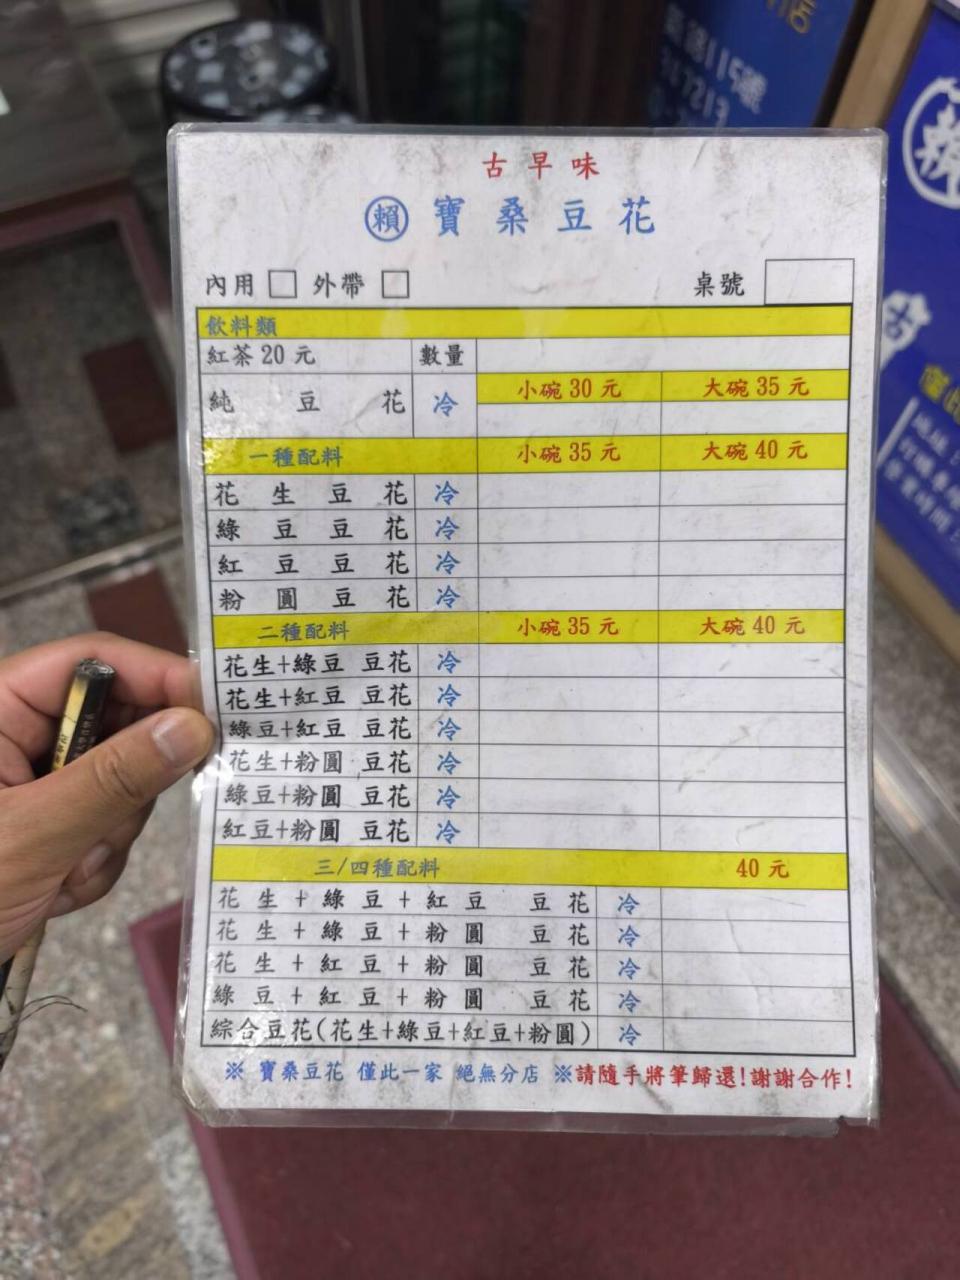 店
119號
7213
賴
古早味
賴 寶桑豆花
內用 □ 外帶 □ 桌號
飲料類
紅茶20元 數量
純豆花 冷 小碗30元 大碗35元
一種配料 小碗35元 大碗40元
花生豆花 冷
綠豆豆花 冷
紅豆豆花 冷
粉圓豆花 冷
二種配料 小碗35元 大碗40元
花生+綠豆 豆花 冷
花生+紅豆 豆花 冷
綠豆+紅豆 豆花 冷
花生+粉圓 豆花 冷
綠豆+粉圓 豆花 冷
紅豆+粉圓 豆花 冷
三/四種配料 40元
花生+綠豆+紅豆 豆花 冷
花生+綠豆+粉圓 豆花 冷
花生+紅豆+粉圓 豆花 冷
綠豆+紅豆+粉圓 豆花 冷
綜合豆花(花生+綠豆+紅豆+粉圓) 冷
※ 寶桑豆花 僅此一家 絕無分店 ※請隨手將筆歸還!謝謝合作!
古
僅此